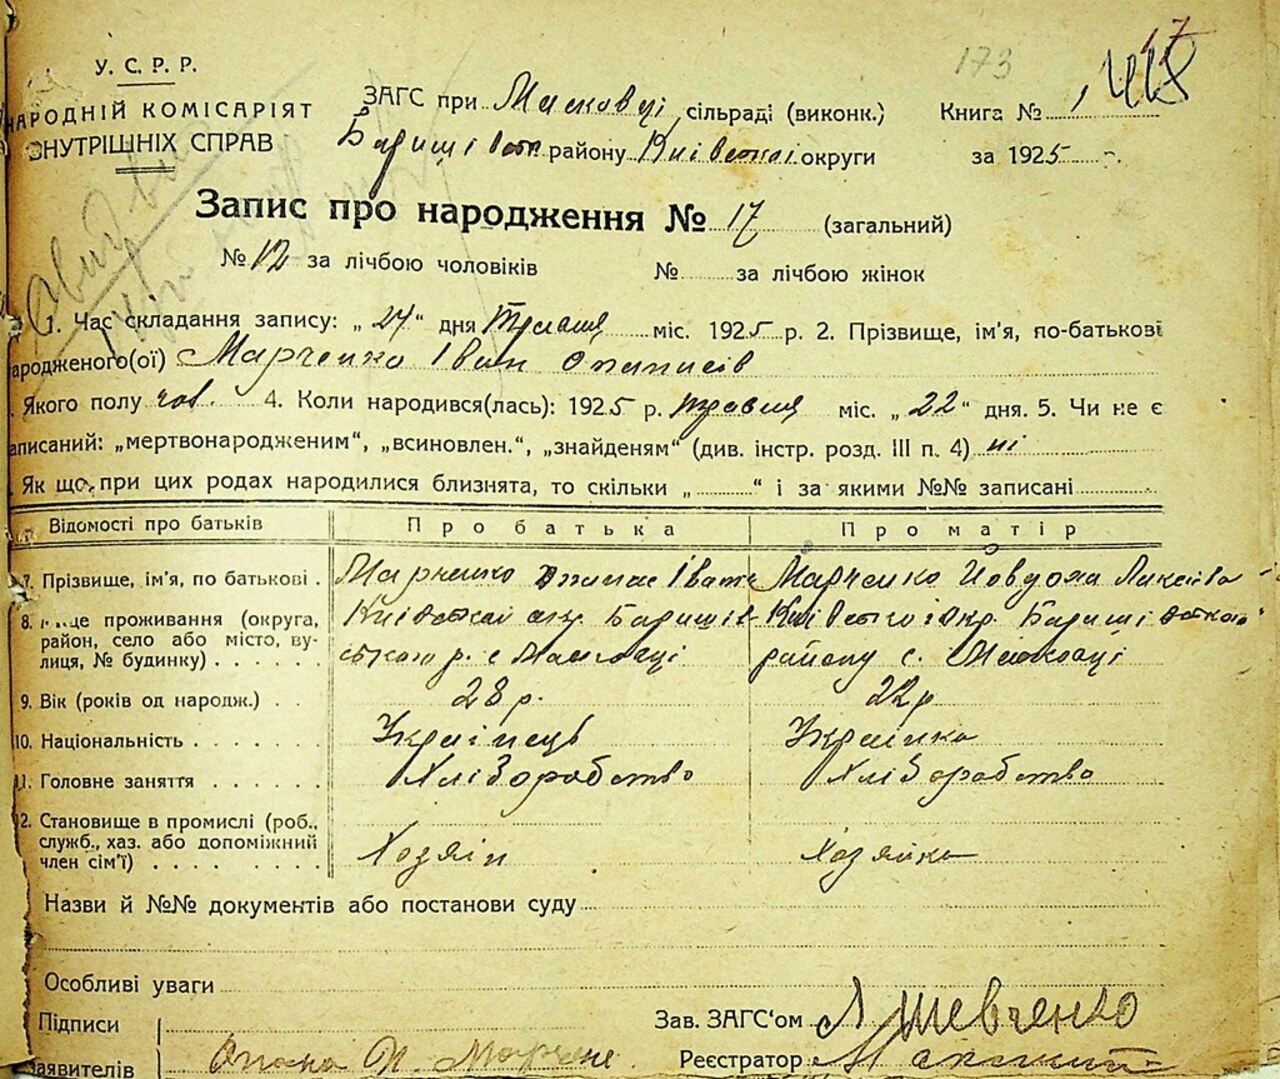 173 17
У. С. Р. Р.
НАРОДНІЙ КОМІСАРІЯТ
ВНУТРІШНІХ СПРАВ
ЗАГС при Масковці сільраді (виконк.) Книга №
Баришівськ. району Київської округи за 1925
Запис про народження № 17 (загальний)
№ 12 за лічбою чоловіків № за лічбою жінок
1. Час складання запису: „ 24 “ дня Травня міс. 1925 р. 2. Прізвище, ім'я, по-батькові
ародженого(ої) Марченко Іван Опанасів
. Якого полу чов. 4. Коли народився(лась): 1925 р. травня міс. „ 22 “ дня. 5. Чи не є
аписаний: „мертвонародженим“, „всиновлен.“, „знайденям“ (див. інстр. розд. III п. 4) ні
. Як що при цих родах народилися близнята, то скільки „ “ і за якими №№ записані
Відомості про батьків Про батька Про матір
7. Прізвище, ім'я, по батькові . Марченко Опанас Іванов Марченко Йовдоха
8. це проживання (округа, район, село або місто, вулиця, № будинку) . . . . . . Київської окр. Баришівського р. с Масковці Київської окр. Баришівського району с. Масковці
9. Вік (років од народж.) . . 28 р. 22 р
10. Національність . . . . . . . Українець Українка
11. Головне заняття . . . . . . Хліборобство Хліборобство
12. Становище в промислі (роб., служб., хаз. або допоміжний член сім'ї) . . . . . . . . Хозяін Хозяйка
Назви й №№ документів або постанови суду
Особливі уваги
Підписи Зав. ЗАГС'ом Л Шевченко
заявителів Опана И. Марчене Реєстратор